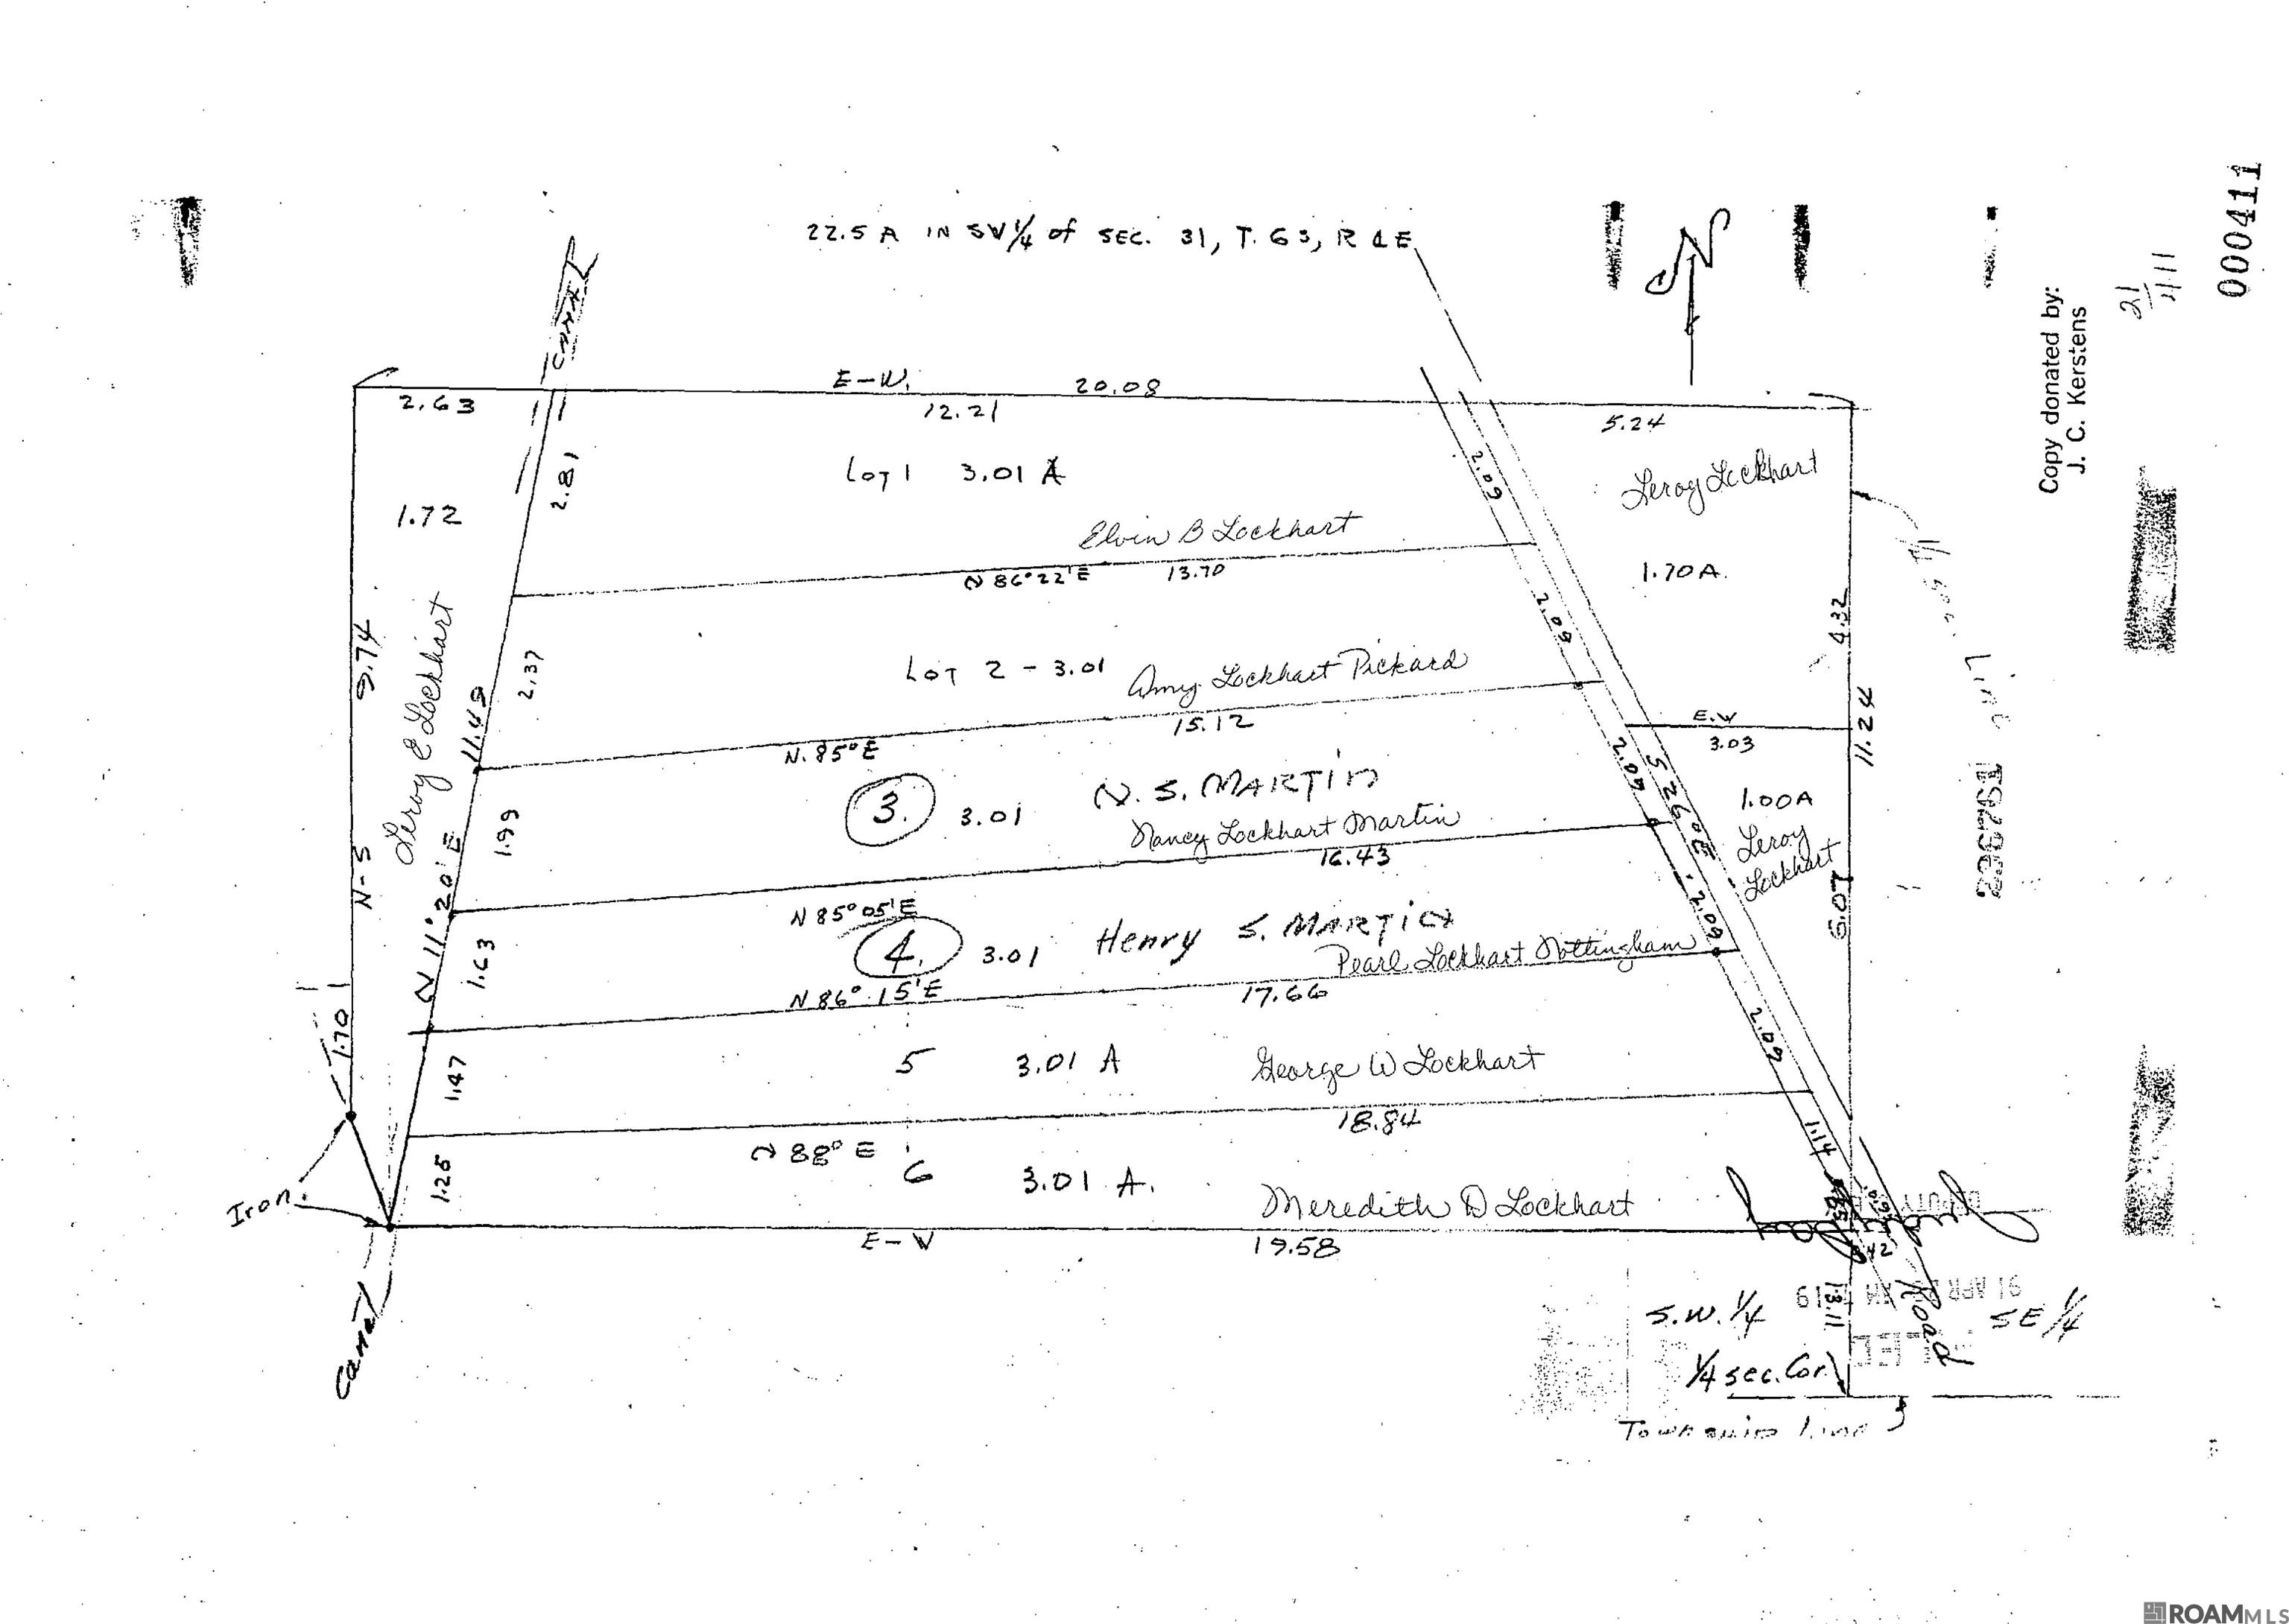 22.5 A IN SW 1/4 of SEC. 31, T. G 3, R 1 E
N
000411
21
411
Copy donated by:
J. C. Kerstens
Canal
E-W.
20.08
2.63
12.21
5.24
2.81
Lot 1 3.01 A
2.09
Leroy Lockhart
1.72
Elvin B Lockhart
N 86°22'E
13.70
1.70 A.
9.74
N-S
Leroy E Lockhart
2.37
Lot 2 - 3.01
Amy Lockhart Pickard
2.09
4.32
Line
11.49
N. 85° E
15.12
E.W
3.03
11.24
3.
3.01
N. S. MARTIN
Nancy Lockhart Martin
2.09
1.00 A
Leroy
Lockhart
1.99
N 11° 20' E
N 85° 05' E
16.43
6.07
4.
3.01
Henry S. MARTIN
Pearl Lockhart Nottingham
2.09
1.63
N 86° 15' E
17.66
1.70
5
3.01 A
George W Lockhart
2.09
1.47
18.84
N 88° E
1.14
6
3.01 A.
Meredith D Lockhart
1.25
Iron.
E-W
19.58
.42
Canal
S.W. 1/4
13.11
Road
SE 1/4
1/4 sec. Cor.
Township Line
ROAM MLS